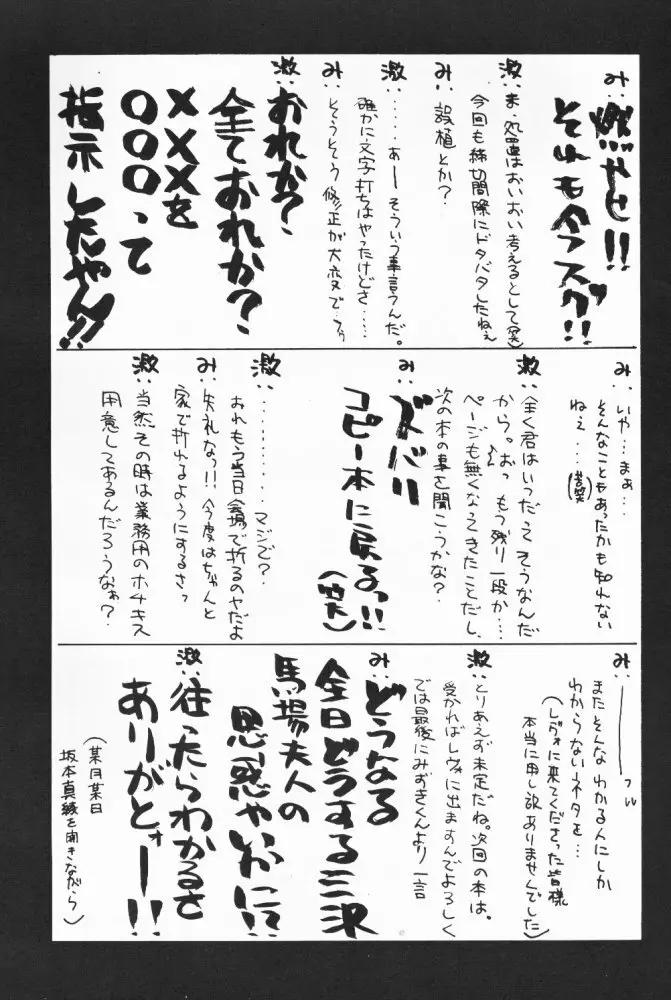 み：燃やせ!!
それも今スグ!!
激：ま、処置はおいおい考えるとして(笑)
今回も締切間際にドタバタしたねぇ
み：誤植とか？
激：……ぁーそういう事言うんだ。
確かに文字打ちはやったけどさ……
み：そうそう修正が大変で…って
激：おれか？
全ておれか？
×××を
○○○って
指示したやん!!
み：いや…まぁ…
そんなこともあったかも知れない
ねぇ…(苦笑)
激：全く君はいつだってそうなんだ
から。おっもう残り一段か……
ページも無くなってきたことだし、
次の本の事を聞こうかな？
み：ズバリ
コピー本に戻るっ!!
激：…………マジで？
おれもう当日会場で折るのヤだよ
み：失礼なっ!!今度はちゃんと
家で折れるようにするさっ
激：当然その時は業務用のホチキス
用意してあるんだろうなぁ？
み：――――フッ
またそんなわかる人にしか
わからないネタを…
(レヴォに来てくださった皆様
本当に申し訳ありませんでした)
激：とりあえず未定だね。次回の本は。
受かればレヴォに出ますんでよろしく
では最後にみずきくんより一言
み：どうなる
全日どうする三沢
馬場夫人の
思惑やいかに!?
激：往ったらわかるさ
ありがとォー!!
(某月某日
坂本真綾を聞きながら)